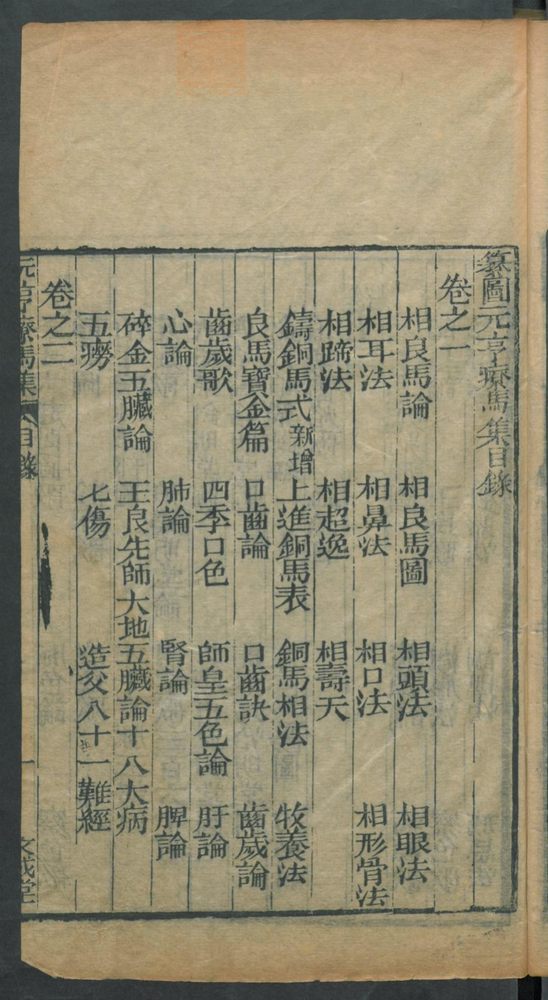 纂圖元亨療馬集目錄
卷之一
相良馬論 相良馬圖 相頭法 相眼法
相耳法 相鼻法 相口法 相形骨法
相蹄法 相超逸 相壽夭
鑄銅馬式新增 上進銅馬表 銅馬相法 牧養法
良馬寶金篇 口齒論 口齒訣 齒歲論
齒歲歌 四季口色 師皇五色論 肝論
心論 肺論 腎論 脾論
碎金五臟論 王良先師大地五臟論 十八大病
五癆 七傷 造父八十一難經
卷之二
元亨療馬集 目錄 一 文盛堂